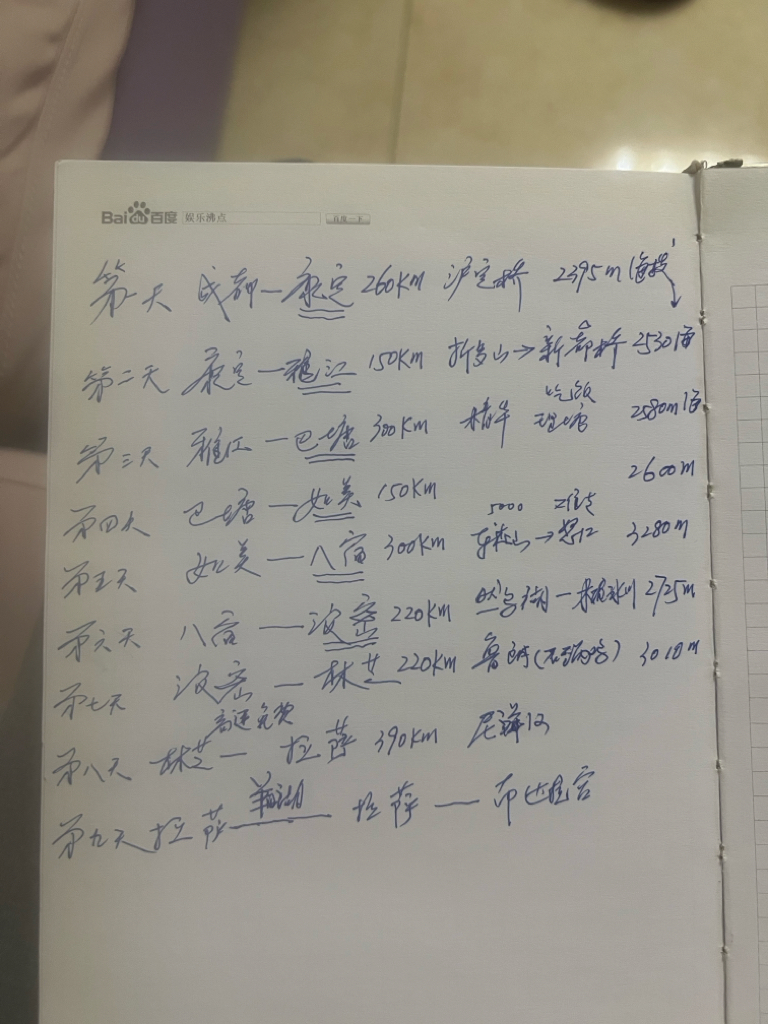 Bai du 百度 娱乐沸点 百度一下
第一天 成都—康定 260KM 泸定桥 2395m 海拔
第二天 康定—雅江 150KM 折多山→新都桥 2530海
吃饭
第三天 雅江—巴塘 300KM 理塘 2580m海
第四天 巴塘—如美 150KM 2600m
5000
第五天 如美—八宿 300KM 东达山→怒江 3280m
第六天 八宿—波密 220KM 然乌湖—米堆冰川 2725m
第七天 波密—林芝 220KM 鲁朗 3010m
高速免费
第八天 林芝—拉萨 390KM 尼洋河
羊湖
第九天 拉萨—拉萨—布达拉宫